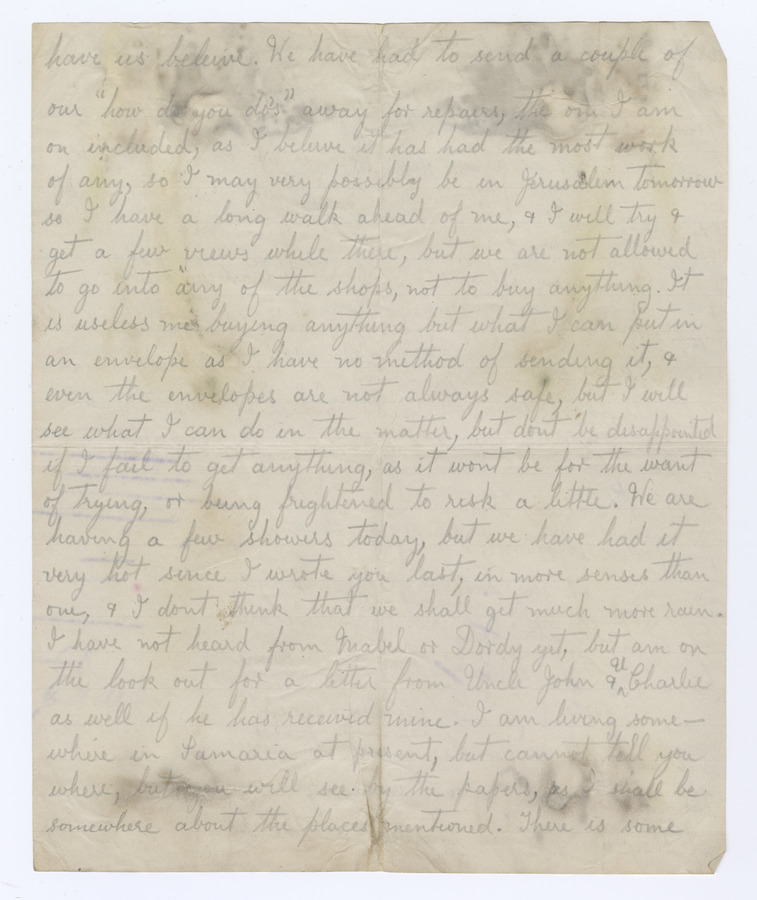 have us beleive. We have had to send a couple of
our "how do you do's" away for repairs, the one I am
on included, as I beleive it has had the most work
of any, so I may very possibly be in Jerusalem tomorrow
so I have a long walk ahead of me, & I will try &
get a few views while there, but we are not allowed
to go into any of the shops, not to buy anything. It
is useless me buying anything but what I can put in
an envelope as I have no method of sending it, &
even the envelopes are not always safe, but I will
see what I can do in the matter, but dont be disappointed
if I fail to get anything, as it wont be for the want
of trying, or being frightened to risk a little. We are
having a few showers today, but we have had it
very hot since I wrote you last, in more senses than
one, & I dont think that we shall get much more rain.
I have not heard from Mabel or Dordy yet, but am on
the look out for a letter from Uncle John & U Charlie
as well if he has received mine. I am living some-
where in Samaria at present, but cannot tell you
where, but you will see by the papers, as I shall be
somewhere about the places mentioned. There is some